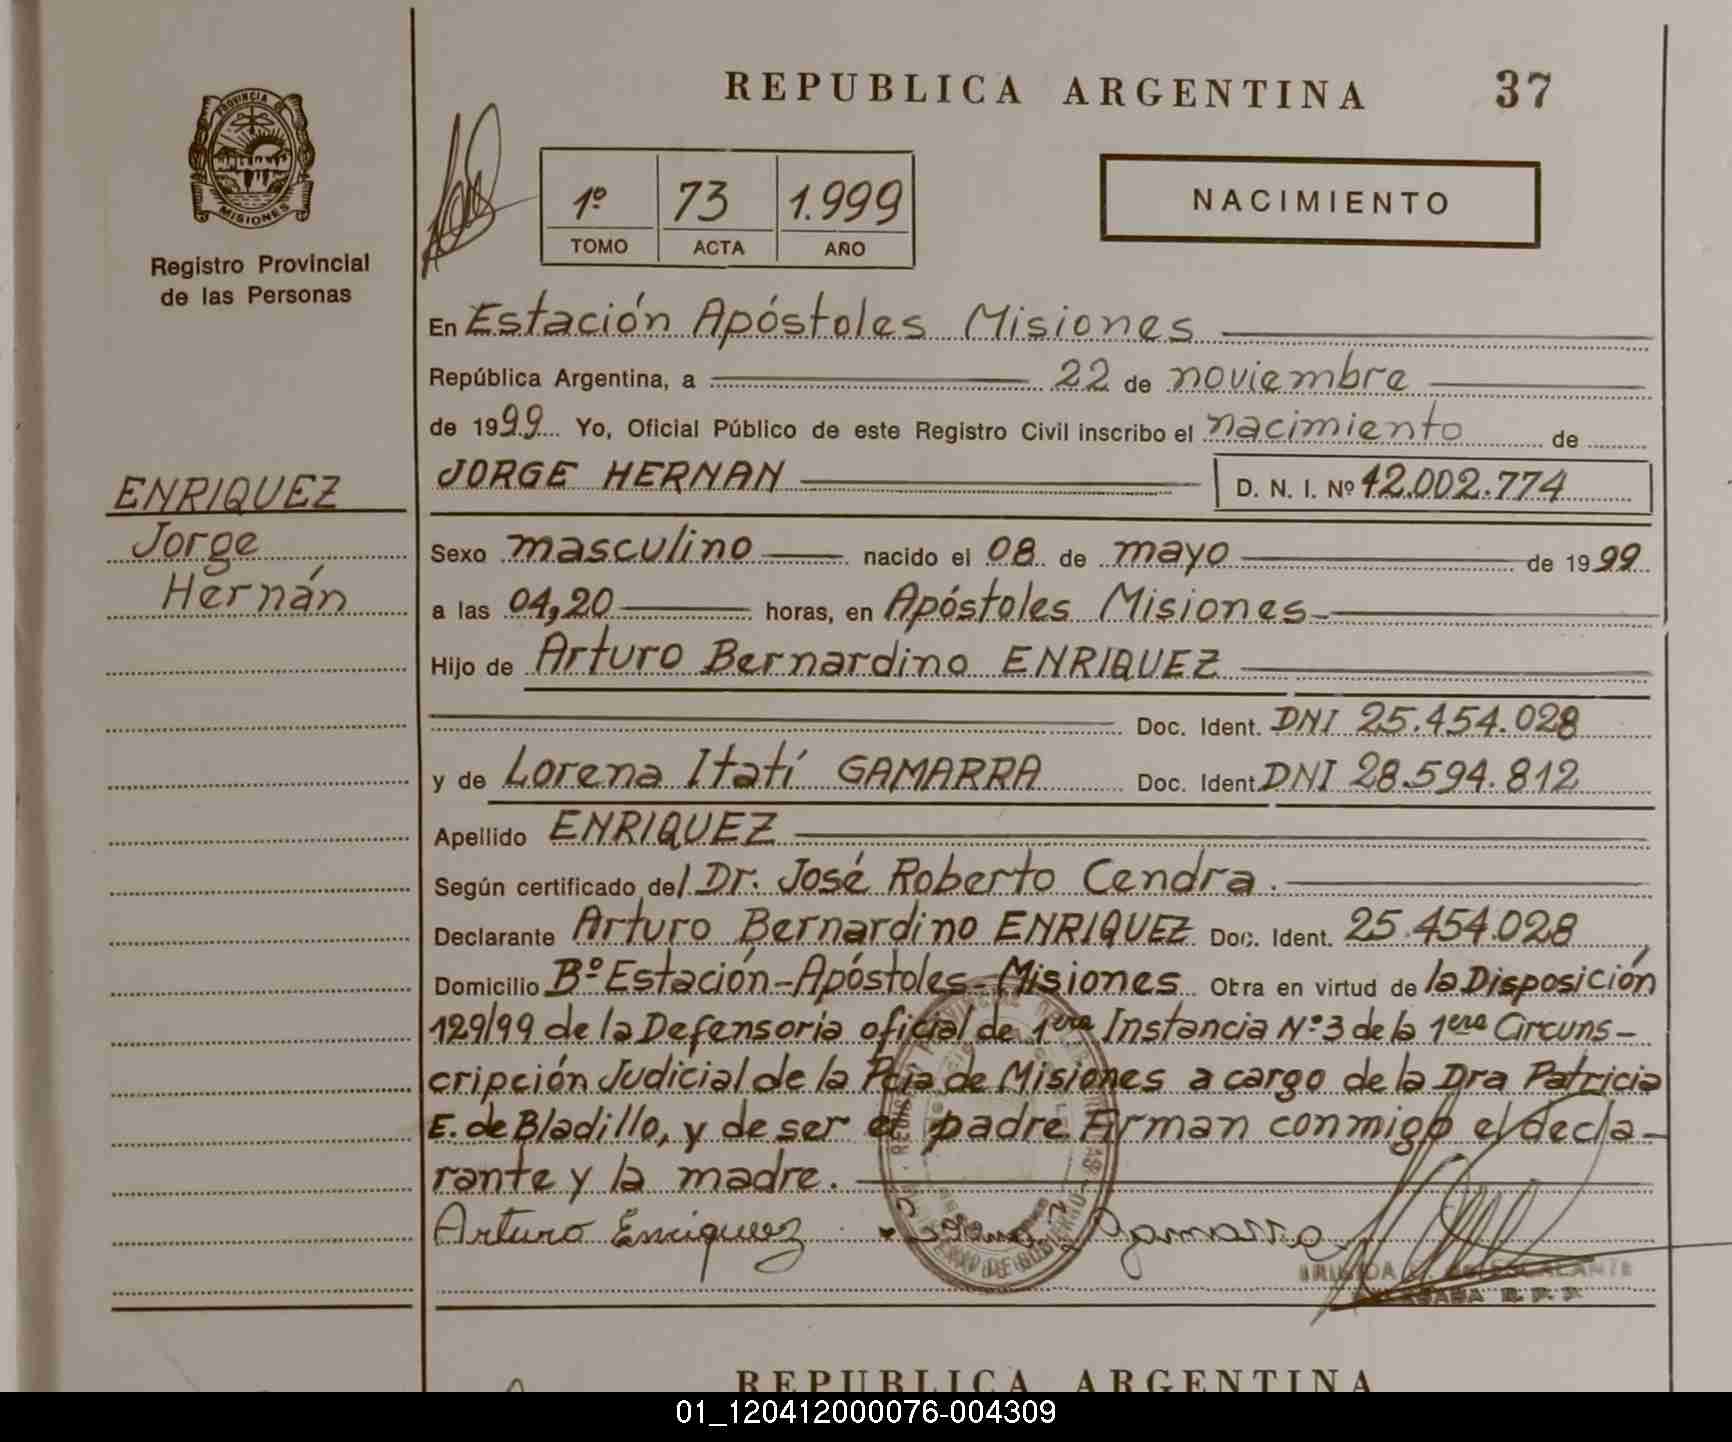 REPUBLICA ARGENTINA 37
PROVINCIA DE
MISIONES
Registro Provincial
de las Personas
1º 73 1.999
TOMO ACTA AÑO
NACIMIENTO
En Estación Apóstoles Misiones
República Argentina, a 22 de noviembre
de 1999 Yo, Oficial Público de este Registro Civil inscribo el nacimiento de
JORGE HERNAN D. N. I. Nº 42.002.774
ENRIQUEZ
Jorge
Hernán
Sexo masculino nacido el 08 de mayo de 1999
a las 04,20 horas, en Apóstoles Misiones
Hijo de Arturo Bernardino ENRIQUEZ
Doc. Ident. DNI 25.454.028
y de Lorena Itatí GAMARRA Doc. Ident. DNI 28.594.812
Apellido ENRIQUEZ
Según certificado del Dr. José Roberto Cendra.
Declarante Arturo Bernardino ENRIQUEZ Doc. Ident. 25.454.028
Domicilio Bº Estación-Apóstoles-Misiones Obra en virtud de la Disposición
129/99 de la Defensoría oficial de 1era Instancia Nº3 de la 1era Circuns-
cripción Judicial de la Pcia de Misiones a cargo de la Dra Patricia
E. de Bladillo, y de ser el padre Firman conmigo el decla-
rante y la madre.
Arturo Enriquez Gamarra
ESCALANTE
REPUBLICA ARGENTINA
01_120412000076-004309